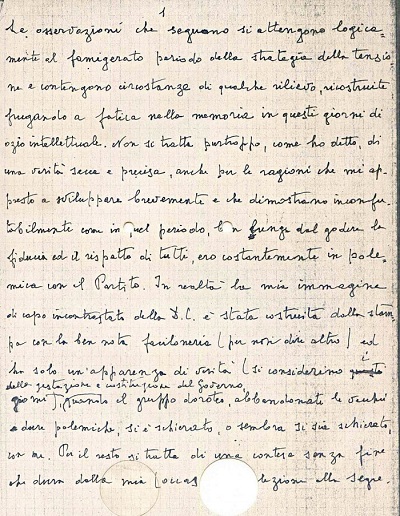 1
Le osservazioni che seguono si attengono logica=
mente al famigerato periodo della strategia della tensio=
ne e contengono circostanze di qualche rilievo, ricostruite
frugando a fatica nella memoria in questi giorni di
ozio intellettuale. Non si tratta purtroppo, come ho detto, di
una verità secca e precisa, anche per le ragioni che mi ap=
presto a sviluppare brevemente e che dimostrano inconfu=
tabilmente come in quel periodo, lungi dal godere la
fiducia ed il rispetto di tutti, ero costantemente in pole=
mica con il Partito. In realtà la mia immagine
di capo incontrastato della D.C. è stata costruita dalla stam=
pa con la ben nota faciloneria (per non dire altro) ed
ha solo un'apparenza di verità (si considerino i
della gestazione e costituzione del Governo,
giorni), quando il gruppo doroteo, abbandonate le vecchie
e dure polemiche, si è schierato, o sembra si sia schierato,
con me. Per il resto si tratta di una contesa senza fine
che dura dalla mia lezione alla segre=